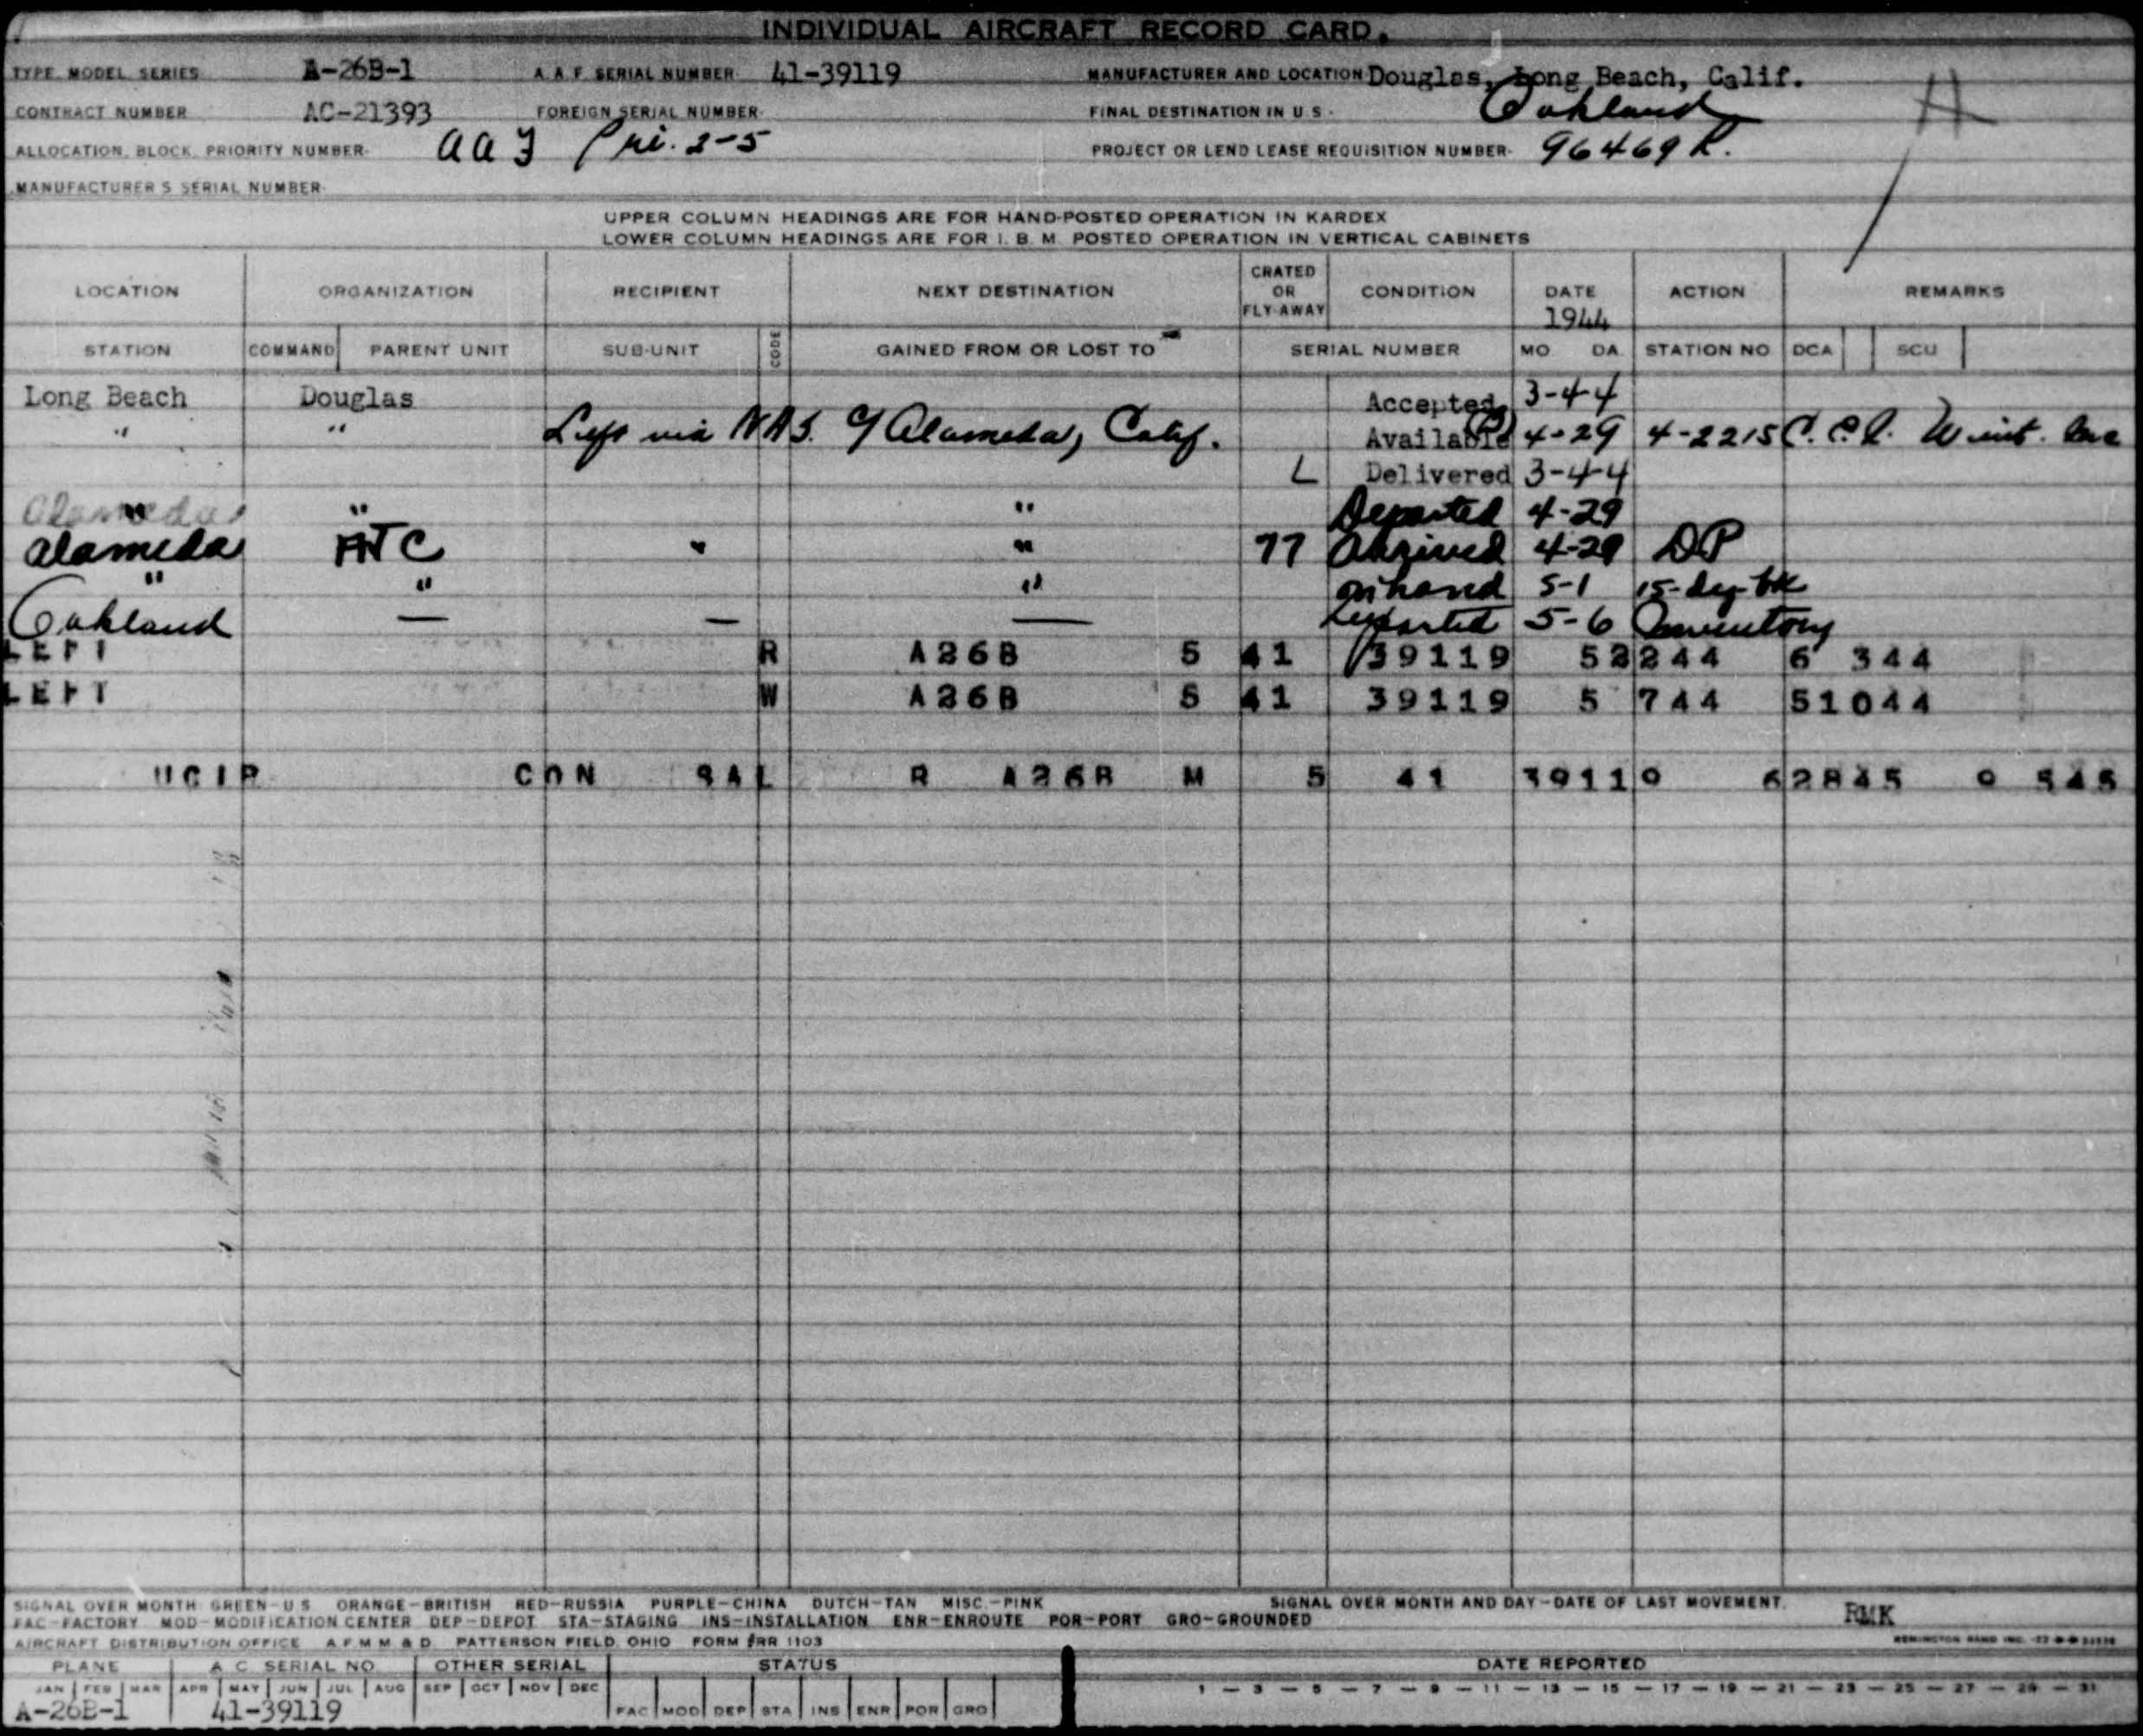 INDIVIDUAL AIRCRAFT RECORD CARD.
TYPE MODEL SERIES A-26B-1 A.A.F. SERIAL NUMBER 41-39119 MANUFACTURER AND LOCATION Douglas, Long Beach, Calif.
CONTRACT NUMBER AC-21393 FOREIGN SERIAL NUMBER- FINAL DESTINATION IN U.S.- Oakland
ALLOCATION, BLOCK, PRIORITY NUMBER- Pri. 2-5 PROJECT OR LEND LEASE REQUISITION NUMBER- 96469 R.
MANUFACTURER'S SERIAL NUMBER-
UPPER COLUMN HEADINGS ARE FOR HAND-POSTED OPERATION IN KARDEX
LOWER COLUMN HEADINGS ARE FOR I.B.M. POSTED OPERATION IN VERTICAL CABINETS
LOCATION ORGANIZATION RECIPIENT NEXT DESTINATION CRATED OR FLY-AWAY CONDITION DATE 1944 ACTION REMARKS
STATION COMMAND PARENT UNIT SUB-UNIT CODE GAINED FROM OR LOST TO SERIAL NUMBER MO. DA. STATION NO DCA SCU
Long Beach Douglas Accepted 3-4-4
" " Left via NAS. Alameda, Calif. Available 4-29 4-2215
L Delivered 3-4-4
Alameda " " Departed 4-29
Alameda ATC " " 77 Arrived 4-29 DP
" " " On hand 5-1
Oakland — — — Departed 5-6 Inventory
LEFT R A26B 5 41 39119 52244 6 344
LEFT W A26B 5 41 39119 5 744 51044
CON SAL R A26B M 5 41 39119 62845
SIGNAL OVER MONTH GREEN-U.S. ORANGE-BRITISH RED-RUSSIA PURPLE-CHINA DUTCH-TAN MISC.-PINK SIGNAL OVER MONTH AND DAY-DATE OF LAST MOVEMENT.
FAC-FACTORY MOD-MODIFICATION CENTER DEP-DEPOT STA-STAGING INS-INSTALLATION ENR-ENROUTE POR-PORT GRO-GROUNDED RMK
AIRCRAFT DISTRIBUTION OFFICE A.F.M.M.&D. PATTERSON FIELD, OHIO FORM #RR 1103
PLANE A C SERIAL NO OTHER SERIAL STATUS DATE REPORTED
JAN FEB MAR APR MAY JUN JUL AUG SEP OCT NOV DEC 1 — 3 — 5 — 7 — 9 — 11 — 13 — 15 — 17 — 19 — 21 — 23 — 25 — 27 — 29 — 31
A-26B-1 41-39119 FAC MOD DEP STA INS ENR POR GRO